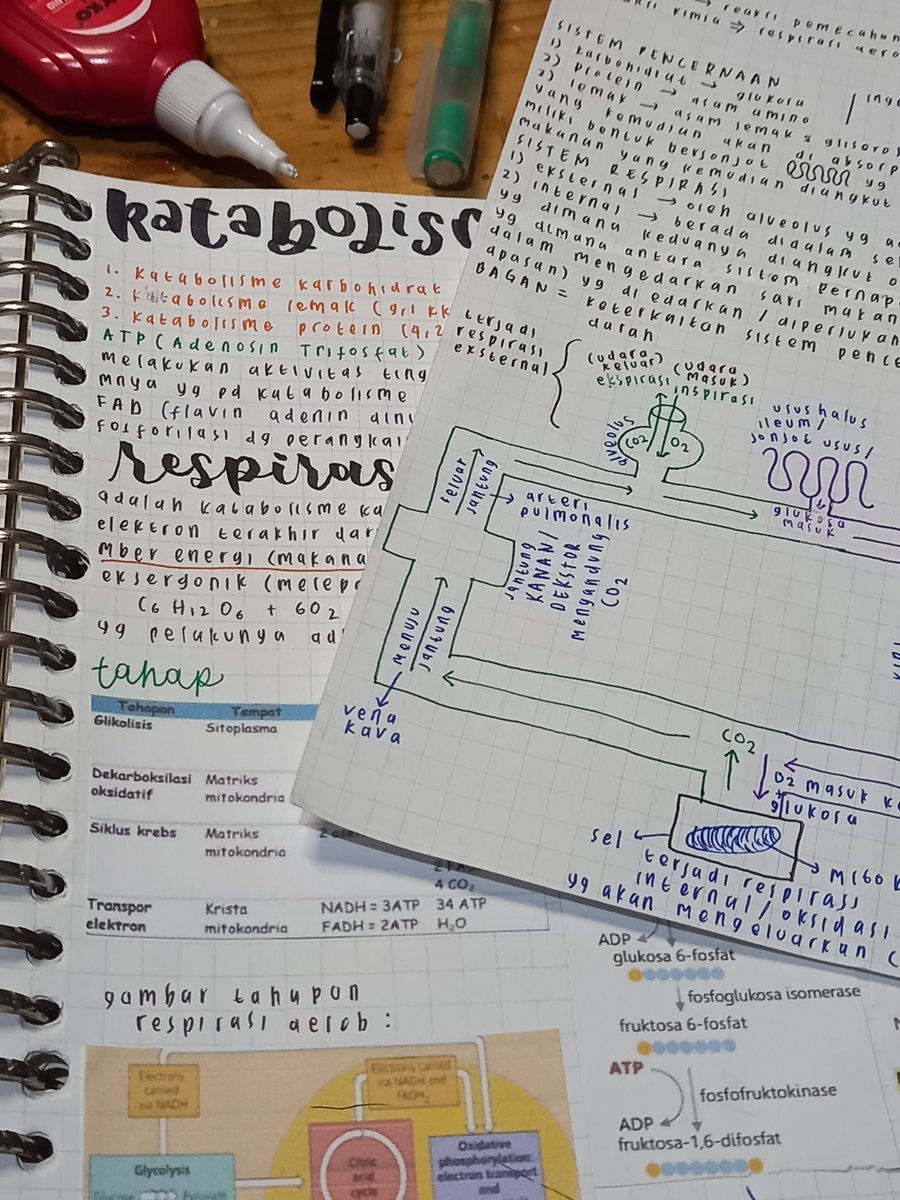 katabolis
1. katabolisme karbohidrat
2. katabolisme lemak (9,1 kk
3. katabolisme protein (4,2
ATP (Adenosin Trifosfat)
melakukan aktivitas ting
mnya yg pd katabolisme
FAD (flavin adenin dinu
fosforilasi dg perangkai
respiras
adalah katabolisme ka
elektron terakhir dar
mber energi (makana
eksergonik (melepa
C6 H12 O6 + 6O2
yg pelakunya ad
tahap
Tahapan Tempat
Glikolisis Sitoplasma
Dekarboksilasi Matriks
oksidatif mitokondria
Siklus krebs Matriks
mitokondria
4 CO₂
Transpor Krista NADH = 3ATP 34 ATP
elektron mitokondria FADH = 2ATP H₂O
gambar tahapan
respirasi aerob :
Electrons carried via NADH
Electrons carried via NADH and FADH₂
Glycolysis
Citric acid cycle
Oxidative phosphorylation: electron transport and
reaksi pemecahan
kimia ⇒ respirasi aero
SISTEM PENCERNAAN
1) karbohidrat → glukosa
2) protein → asam amino
3) lemak → asam lemak & glisero
yang kemudian akan di absorp
miliki bentuk berjonjot yg
makanan yang kemudian diangkut
SISTEM RESPIRASI
1) eksternal → oleh alveolus yg
2) internal → berada didalam sel
yg dimana keduanya diangkut o
yg dimana antara sistem pernap
dalam mengedarkan sari makan
apasan) yg di edarkan / diperlukan
BAGAN = keterkaitan sistem pence
darah
terjadi
respirasi
eksternal
(udara keluar) (udara masuk)
ekspirasi inspirasi
alveolus
CO2 O2
usus halus
ileum/
jonjot usus/
glukosa
masuk
keluar
jantung
arteri
pulmonalis
jantung
KANAN/
DEKSTOR
mengandung
CO2
menuju
jantung
vena
kava
CO2
O2 masuk k
+
glukosa
sel
mito
terjadi respirasi
internal / oksidasi
yg akan mengeluarkan
ADP
glukosa 6-fosfat
fosfoglukosa isomerase
fruktosa 6-fosfat
ATP
fosfofruktokinase
ADP
fruktosa-1,6-difosfat